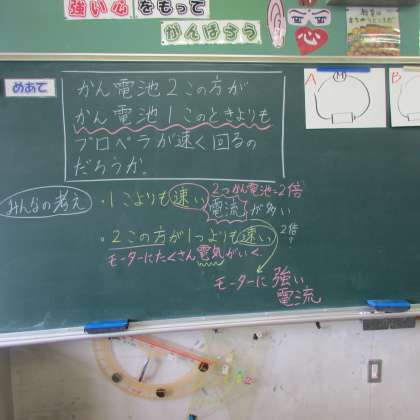 強い心をもって
がんばろう
めあて
かん電池2この方が
かん電池1このときよりも
プロペラが速く回るの
だろうか。
みんなの考え
・1こよりも速い
2つかん電池=2倍
電流が多い
・2この方が1つよりも速い
2倍?
モーターにたくさん電気がいく
モーターに強い
電流
A
M
B